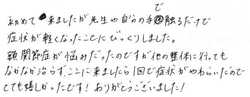 初めて来ましたが先生が自分の手で触るだけで
症状が軽くなったことにびっくりしました。
顎関節症が悩みだったのですが他の整体に行っても
なかなか治らず、ここに来ましたら1回で症状がやわらいだので
とても嬉しかったです！ありがとうございました！